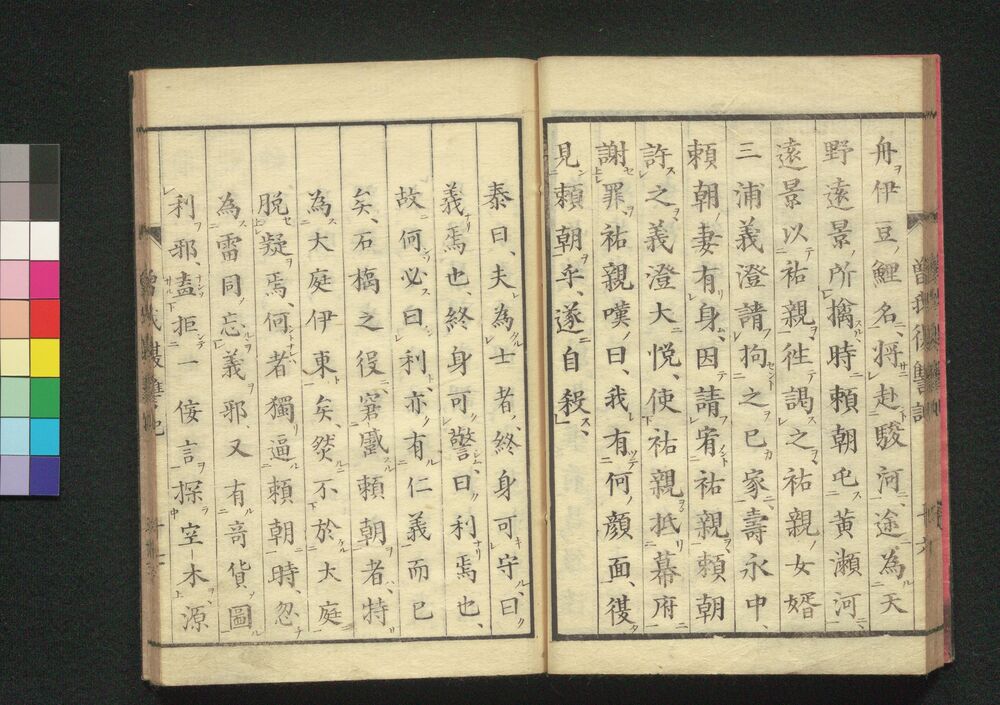 舟伊豆鯉名将赴駿河途為天
野遠景所擒時頼朝屯黄瀬河
遠景以祐親徃謁之祐親女婿
三浦義澄請拘之己家壽永中
頼朝妻有身因請宥祐親頼朝
許之義澄大悦使祐親抵幕府
謝罪祐親嘆曰我有何顔面復
見頼朝乎遂自殺
泰曰夫為士者終身可守曰
義焉也終身可警曰利焉也
故何必曰利亦有仁義而已
矣石橋之役窘蹙頼朝者特
為大庭伊東矣然不於大庭
脱疑焉何者獨逼頼朝時忽
為雷同忘義邪又有奇貨圖
利邪盍拒一侫言探空木源